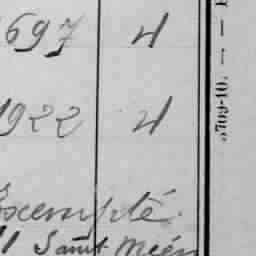 697 4
1922 4
Exempté
11 Saint Méen
5709-10. — —